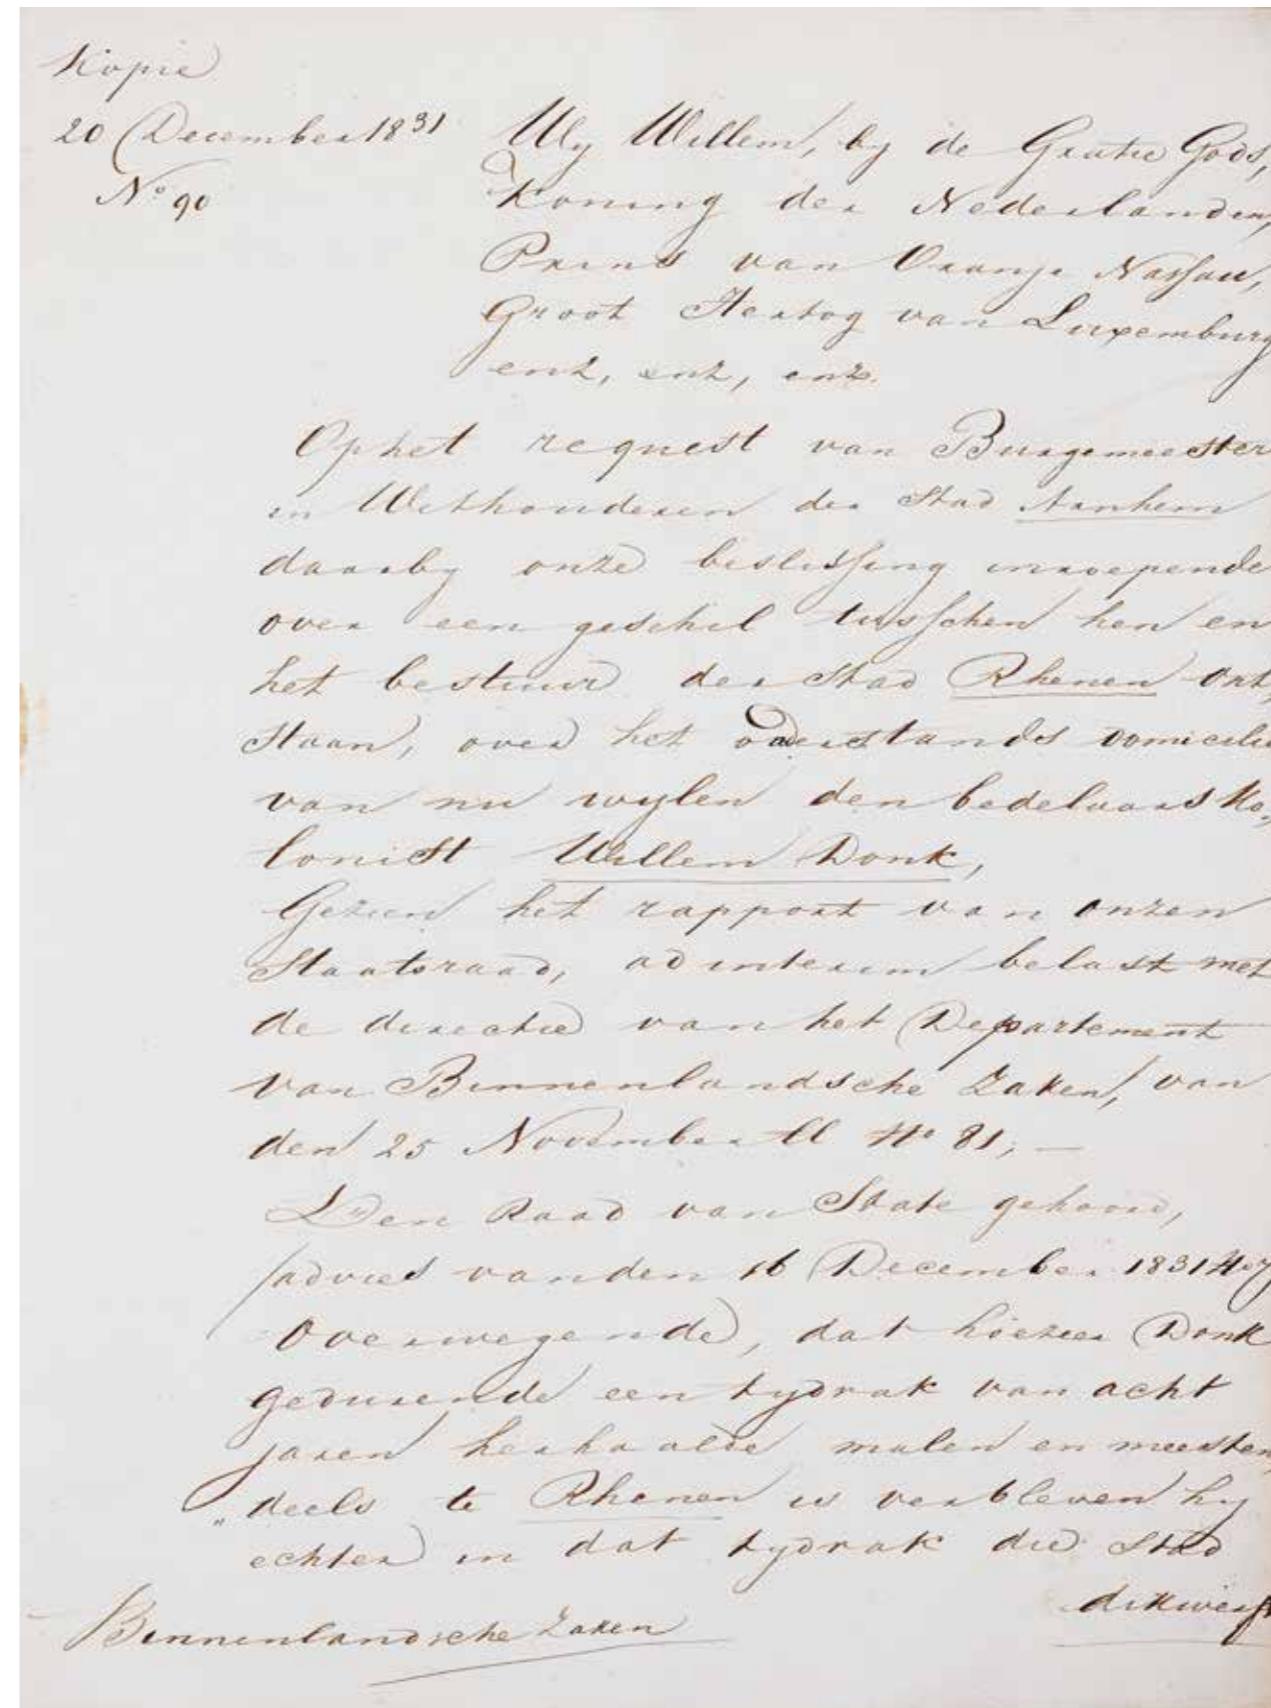 Kopie
20 December 1831
No 90
Wy Willem, by de Gratie Gods,
Koning der Nederlanden,
Prins van Oranje Nassau,
Groot Hertog van Luxemburg
enz, enz, enz.
Op het request van Burgemeester
en Wethouderen der Stad Arnhem
daarby onze beslissing inroepende
over een geschil tusschen hen en
het bestuur der Stad Rhenen ont,
staan, over het onderstands domicilie
van nu wylen den bedelaars ko,
lonist Willem Donk,
Gezien het rapport van onzen
Staatsraad, ad interim belast met
de directie van het Departement
van Binnenlandsche Zaken, van
den 25 November ll No 81, —
Den Raad van State gehoord,
/advies van den 16 December 1831
Overwegende, dat hoezeer Donk
gedurende een tydvak van acht
jaren herhaalde malen en meesten,
„deels te Rhenen is verbleven hy
echter in dat tydvak die Stad
dikwerf
Binnenlandsche Zaken